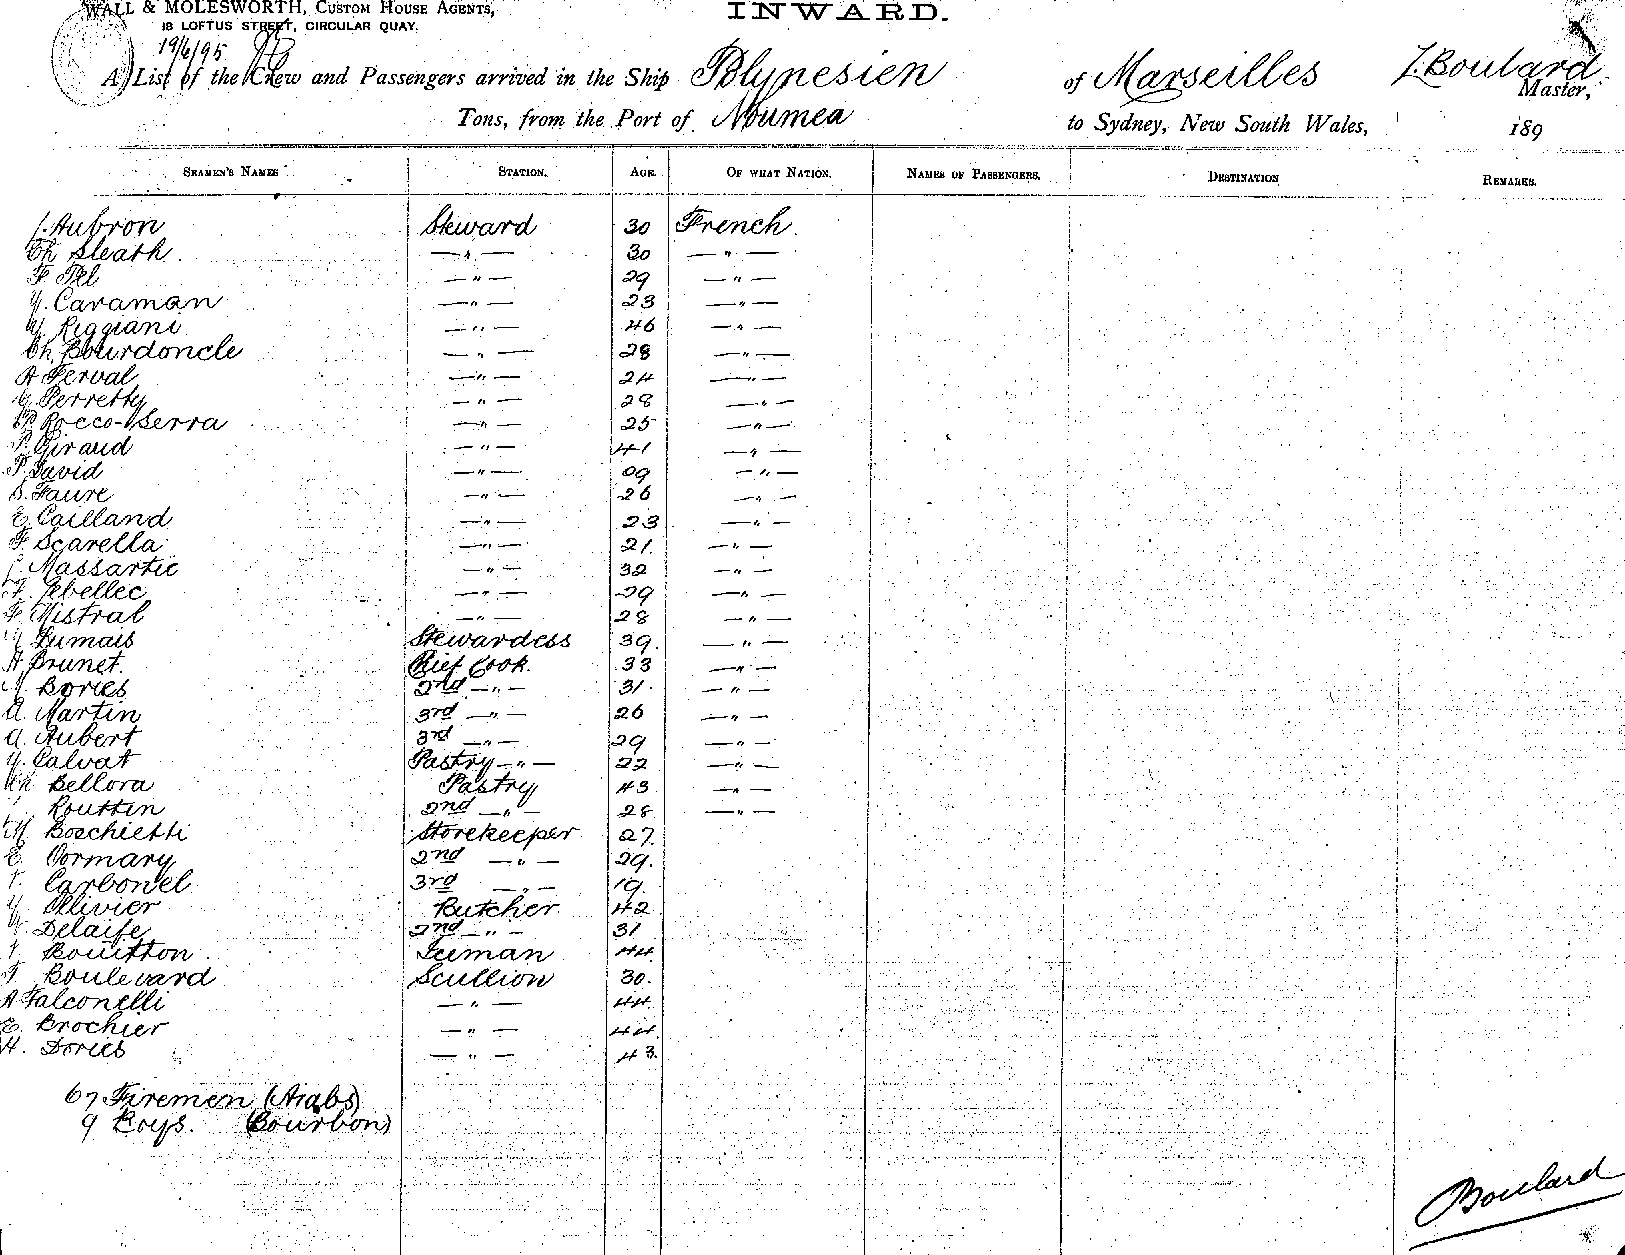 WALL & MOLESWORTH, CUSTOM HOUSE AGENTS,
18 LOFTUS STREET, CIRCULAR QUAY.
INWARD.
19/6/95
A List of the Crew and Passengers arrived in the Ship Polynesien of Marseilles Boulard Master,
Tons, from the Port of Noumea to Sydney, New South Wales, 189
SEAMEN'S NAMES STATION. AGE. OF WHAT NATION. NAMES OF PASSENGERS. DESTINATION REMARKS.
J. Aubron Steward 30 French
Ch Sleath —"— 30 —"—
F. Pel —"— 29 —"—
Y. Caraman —"— 23 —"—
Riggiani —"— 46 —"—
Ch. Bourdoncle —"— 28 —"—
A Ferval —"— 24 —"—
Perretty —"— 28 —"—
Rocco-Serra —"— 25 —"—
P. Giraud —"— 41 —"—
P. David —"— 09 —"—
S. Faure —"— 26 —"—
E. Cailland —"— 23 —"—
F. Scarella —"— 21 —"—
Massartic —"— 32 —"—
F. Lebellec —"— 29 —"—
F. Mistral —"— 28 —"—
Dumais Stewardess 39. —"—
A Brunet. Chief Cook. 33 —"—
Bories 2nd —"— 31. —"—
A. Martin 3rd —"— 26 —"—
A. Aubert 3rd —"— 29 —"—
Y. Calvat Pastry —"— 22 —"—
Ch Bellora Pastry 43 —"—
Routtin 2nd —"— 28 —"—
M. Boschietti Storekeeper 27.
E. Cormary 2nd —"— 29.
Carbonel 3rd —"— 19.
Y. Ollivier Butcher 42
Delaife 2nd —"— 31
Bouitton 44
F. Boulevard Scullion 30.
A Falconelli —"— 44
E. Brochier —"— 44
H. Dories —"— 43.
67 Firemen (Arabs)
9 Boys. (Bourbon)
Boulard